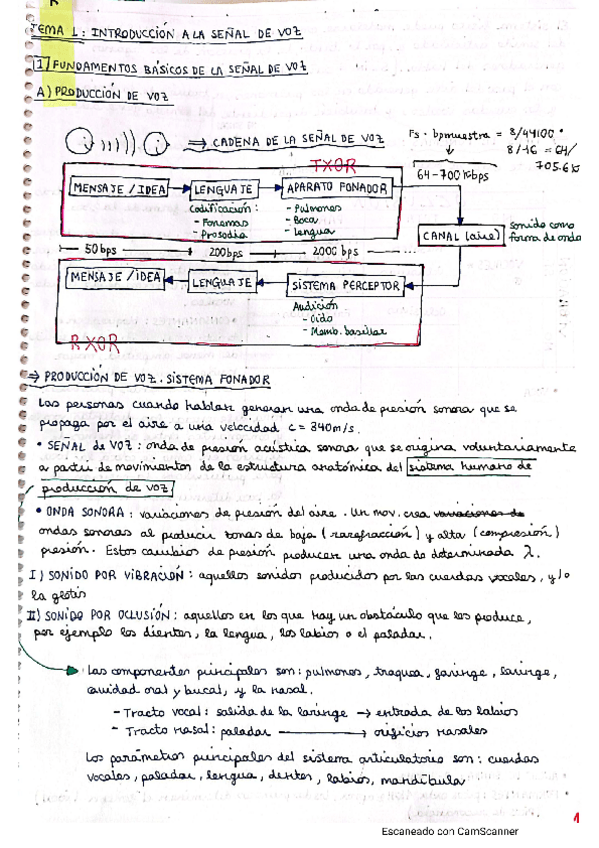 TEMA 1: INTRODUCCIÓN A LA SEÑAL DE VOZ
1) FUNDAMENTOS BÁSICOS DE LA SEÑAL DE VOZ
A) PRODUCCIÓN DE VOZ
⇒ CADENA DE LA SEÑAL DE VOZ
Fs · bpmuestra = 8/44100 ·
8/-16 = 64/
705.6 k
TXOR
64-700 kbps
MENSAJE / IDEA
LENGUAJE
APARATO FONADOR
Codificación:
- Fonemas
- Prosodia
- Pulmones
- Boca
- Lengua
CANAL (aire)
sonido como
forma de onda
50 bps
200 bps
2000 bps
MENSAJE / IDEA
LENGUAJE
SISTEMA PERCEPTOR
Audición
- Oído
- Memb. basilar
RXOR
⇒ PRODUCCIÓN DE VOZ. SISTEMA FONADOR
Las personas cuando hablan generan una onda de presión sonora que se
propaga por el aire a una velocidad c = 340m/s.
• SEÑAL DE VOZ: onda de presión acústica sonora que se origina voluntariamente
a partir de movimientos de la estructura anatómica del sistema humano de
producción de voz
• ONDA SONORA: variaciones de presión del aire. Un mov. crea variaciones de
ondas sonoras al producir zonas de baja (rarefracción) y alta (compresión)
presión. Estos cambios de presión producen una onda de determinada λ.
I) SONIDO POR VIBRACIÓN: aquellos sonidos producidos por las cuerdas vocales, y/o
la glotis
II) SONIDO POR OCLUSIÓN: aquellos en los que hay un obstáculo que los produce,
por ejemplo los dientes, la lengua, los labios o el paladar.
Las componentes principales son: pulmones, traquea, faringe, laringe,
cavidad oral y bucal, y la nasal.
- Tracto vocal: salida de la laringe → entrada de los labios
- Tracto nasal: paladar → orificios nasales
Los parámetros principales del sistema articulatorio son: cuerdas
vocales, paladar, lengua, dientes, labios, mandíbula
1
Escaneado con CamScanner